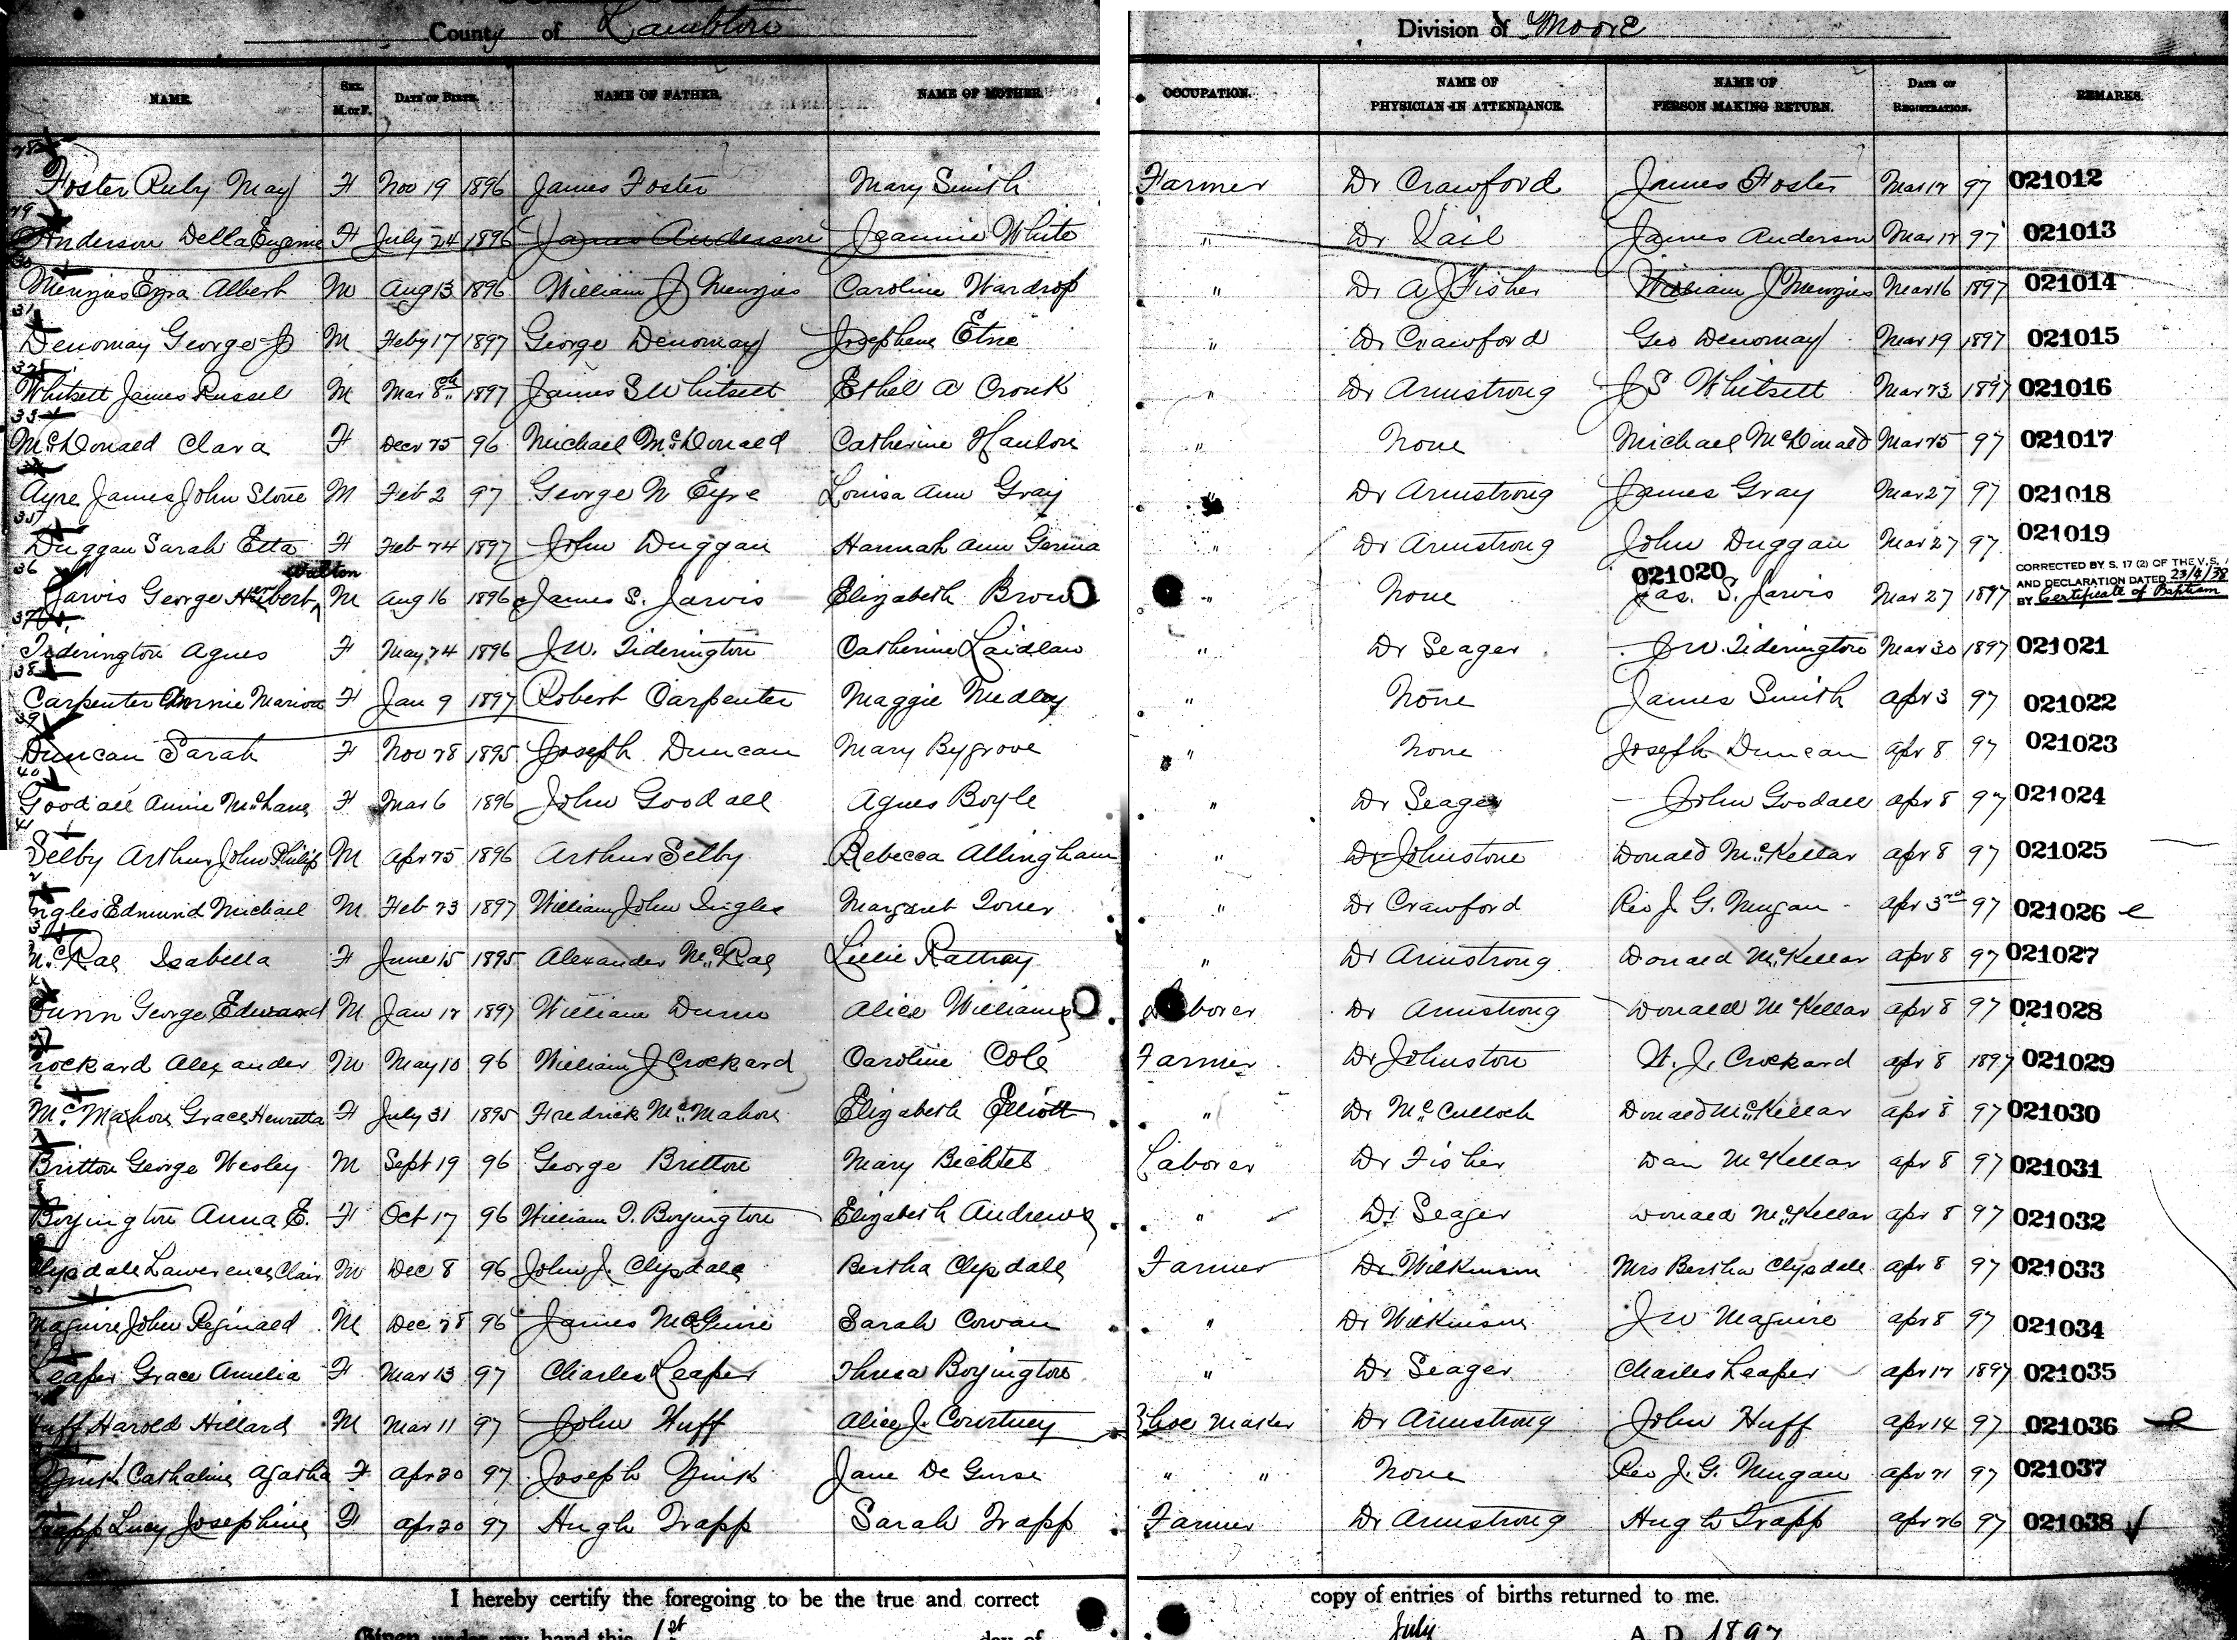 County of Lambton Division of Moore
NAME. SEX. M. or F. DATE OF BIRTH. NAME OF FATHER. NAME OF MOTHER. OCCUPATION. NAME OF PHYSICIAN IN ATTENDANCE. NAME OF PERSON MAKING RETURN. DATE OF REGISTRATION. REMARKS.
28
Foster Ruby May F Nov 19 1896 James Foster Mary Smith Farmer Dr Crawford James Foster Mar 12 97 021012
29
Anderson Della Eugenie F July 24 1896 James Anderson Jeannie White " Dr Vail James Anderson Mar 12 97 021013
30
Menzies Ezra Albert M Aug 13 1896 William J Menzies Caroline Wardrop " Dr A J Fisher William J Menzies Mar 16 1897 021014
31
Denomay George J M Feby 17 1897 George Denomay Josephene Etue " Dr Crawford Geo Denomay Mar 19 1897 021015
32
Whitsett James Russel M Mar 8th 1897 James S Whitsett Ethel A Cronk " Dr Armstrong J S Whitsett Mar 23 1897 021016
33
McDonald Clara F Decr 25 96 Michael McDonald Catherine Hanlon " None Michael McDonald Mar 25 97 021017
34
Ayre James John Stone M Feb 2 97 George W Eyre Louisa Ann Gray " Dr Armstrong James Gray Mar 27 97 021018
35
Duggan Sarah Etta F Feb 24 1897 John Duggan Hannah Ann " Dr Armstrong John Duggan Mar 27 97 021019
36 Walton 021020 CORRECTED BY S. 17 (2) OF THE V.S.
Jarvis George Herbert M Aug 16 1896 James S. Jarvis Elizabeth Brown " None Jas. S. Jarvis Mar 27 1897 AND DECLARATION DATED 23/4/38
BY Certificate of Baptism
37
Tiderington Agnes F May 24 1896 J.W. Tiderington Catherine Laidlaw " Dr Seager J W. Tiderington Mar 30 1897 021021
38
Carpenter Annie Marion F Jan 9 1897 Robert Carpenter Maggie Medley " None James Smith Apr 3 97 021022
39
Duncan Sarah F Nov 28 1895 Joseph Duncan Mary Bygrove " None Joseph Duncan Apr 8 97 021023
40
Goodall Annie McLane F Mar 6 1896 John Goodall Agnes Boyle " Dr Seager John Goodall Apr 8 97 021024
41
Selby Arthur John Philip M Apr 25 1896 Arthur Selby Rebecca Allingham " Dr Johnstone Donald McKellar Apr 8 97 021025
2
ngles Edmund Michael M Feb 23 1897 William John Ingles Margaret " Dr Crawford Rev J. G. Mugan Apr 3rd 97 021026
3
McRae Isabella F June 15 1895 Alexander McRae Lillie Rattray " Dr Armstrong Donald McKellar Apr 8 97 021027
4
Dunn George Edward M Jan 12 1897 William Dunn Alice Williams Laborer Dr Armstrong Donald McKellar Apr 8 97 021028
rockard Alexander M May 10 96 William J Crockard Caroline Cole Farmer Dr Johnston W. J. Crockard Apr 8 1897 021029
McMahon Grace Henretta F July 31 1895 Fredrick McMahon Elizabeth Elliott " Dr McCulloch Donald McKellar Apr 8 97 021030
Britton George Wesley M Sept 19 96 George Britton Mary Bechtel Laborer Dr Fisher Dan McKellar Apr 8 97 021031
Boyington Anna E. F Oct 17 96 William T. Boyington Elizabeth Andrews " Dr Seager Donald McKellar Apr 8 97 021032
lysdale Lawerence Clair M Dec 8 96 John J. Clysdale Bertha Clysdale Farmer Dr Wilkinson Mrs Bertha Clysdale Apr 8 97 021033
Maguire John Reginald M Dec 28 96 James McGuire Sarah Cowan " Dr Wilkinson J W Maguire Apr 8 97 021034
Leaper Grace Amelia F Mar 13 97 Charles Leaper Thresa Boyington " Dr Seager Charles Leaper Apr 12 1897 021035
Huff Harold Hillard M Mar 11 97 John Huff Alice J. Courtney Shoe Maker Dr Armstrong John Huff Apr 14 97 021036
Zink Cathaline Agatha F Apr 20 97 Joseph Zink Jane De Gurse " " None Rev J. G. Mugan Apr 21 97 021037
Trapp Lucy Josephine F Apr 20 97 Hugh Trapp Sarah Trapp Farmer Dr Armstrong Hugh Trapp Apr 26 97 021038
I hereby certify the foregoing to be the true and correct copy of entries of births returned to me.
Given under my hand this 1st day of July A. D. 1897